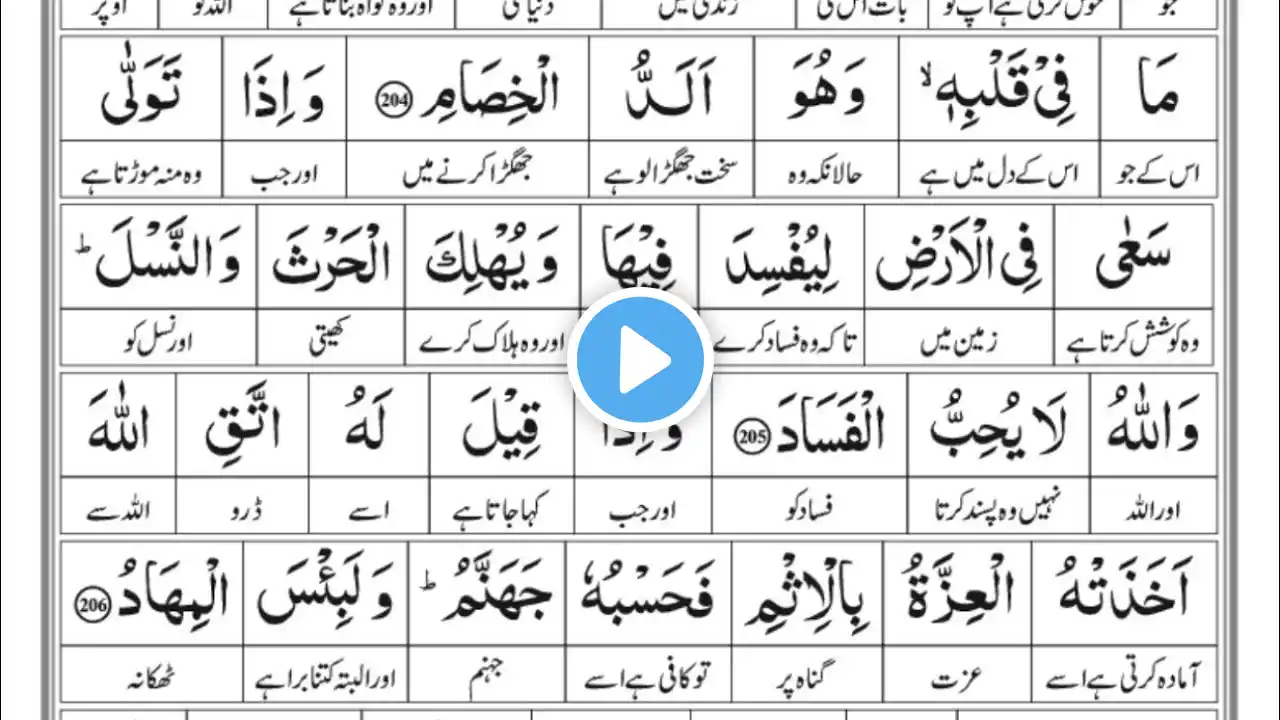 جو خوش کرتی ہے آپ کو بات اس کی زندگی میں دنیا کی اور وہ گواہ بناتا ہے اللہ کو اوپر
مَا فِيْ قَلْبِهٖ ۙ وَهُوَ اَلَدُّ الْخِصَامِ 204 وَاِذَا تَوَلّٰى
اس کے جو اس کے دل میں ہے حالانکہ وہ سخت جھگڑالو ہے جھگڑا کرنے میں اور جب وہ منہ موڑتا ہے
سَعٰى فِى الْاَرْضِ لِيُفْسِدَ فِيْهَا وَيُهْلِكَ الْحَرْثَ وَالنَّسْلَ ؕ
وہ کوشش کرتا ہے زمین میں تاکہ وہ فساد کرے اور وہ ہلاک کرے کھیتی اور نسل کو
وَاللّٰهُ لَا يُحِبُّ الْفَسَادَ 205 وَاِذَا قِيْلَ لَهُ اتَّقِ اللّٰهَ
اور اللہ نہیں وہ پسند کرتا فساد کو اور جب کہا جاتا ہے اسے ڈرو اللہ سے
اَخَذَتْهُ الْعِزَّةُ بِالْاِثْمِ فَحَسْبُهٗ جَهَنَّمُ ؕ وَلَبِئْسَ الْمِهَادُ 206
آمادہ کرتی ہے اسے عزت گناہ پر تو کافی ہے اسے جہنم اور البتہ کتنا برا ہے ٹھکانہ